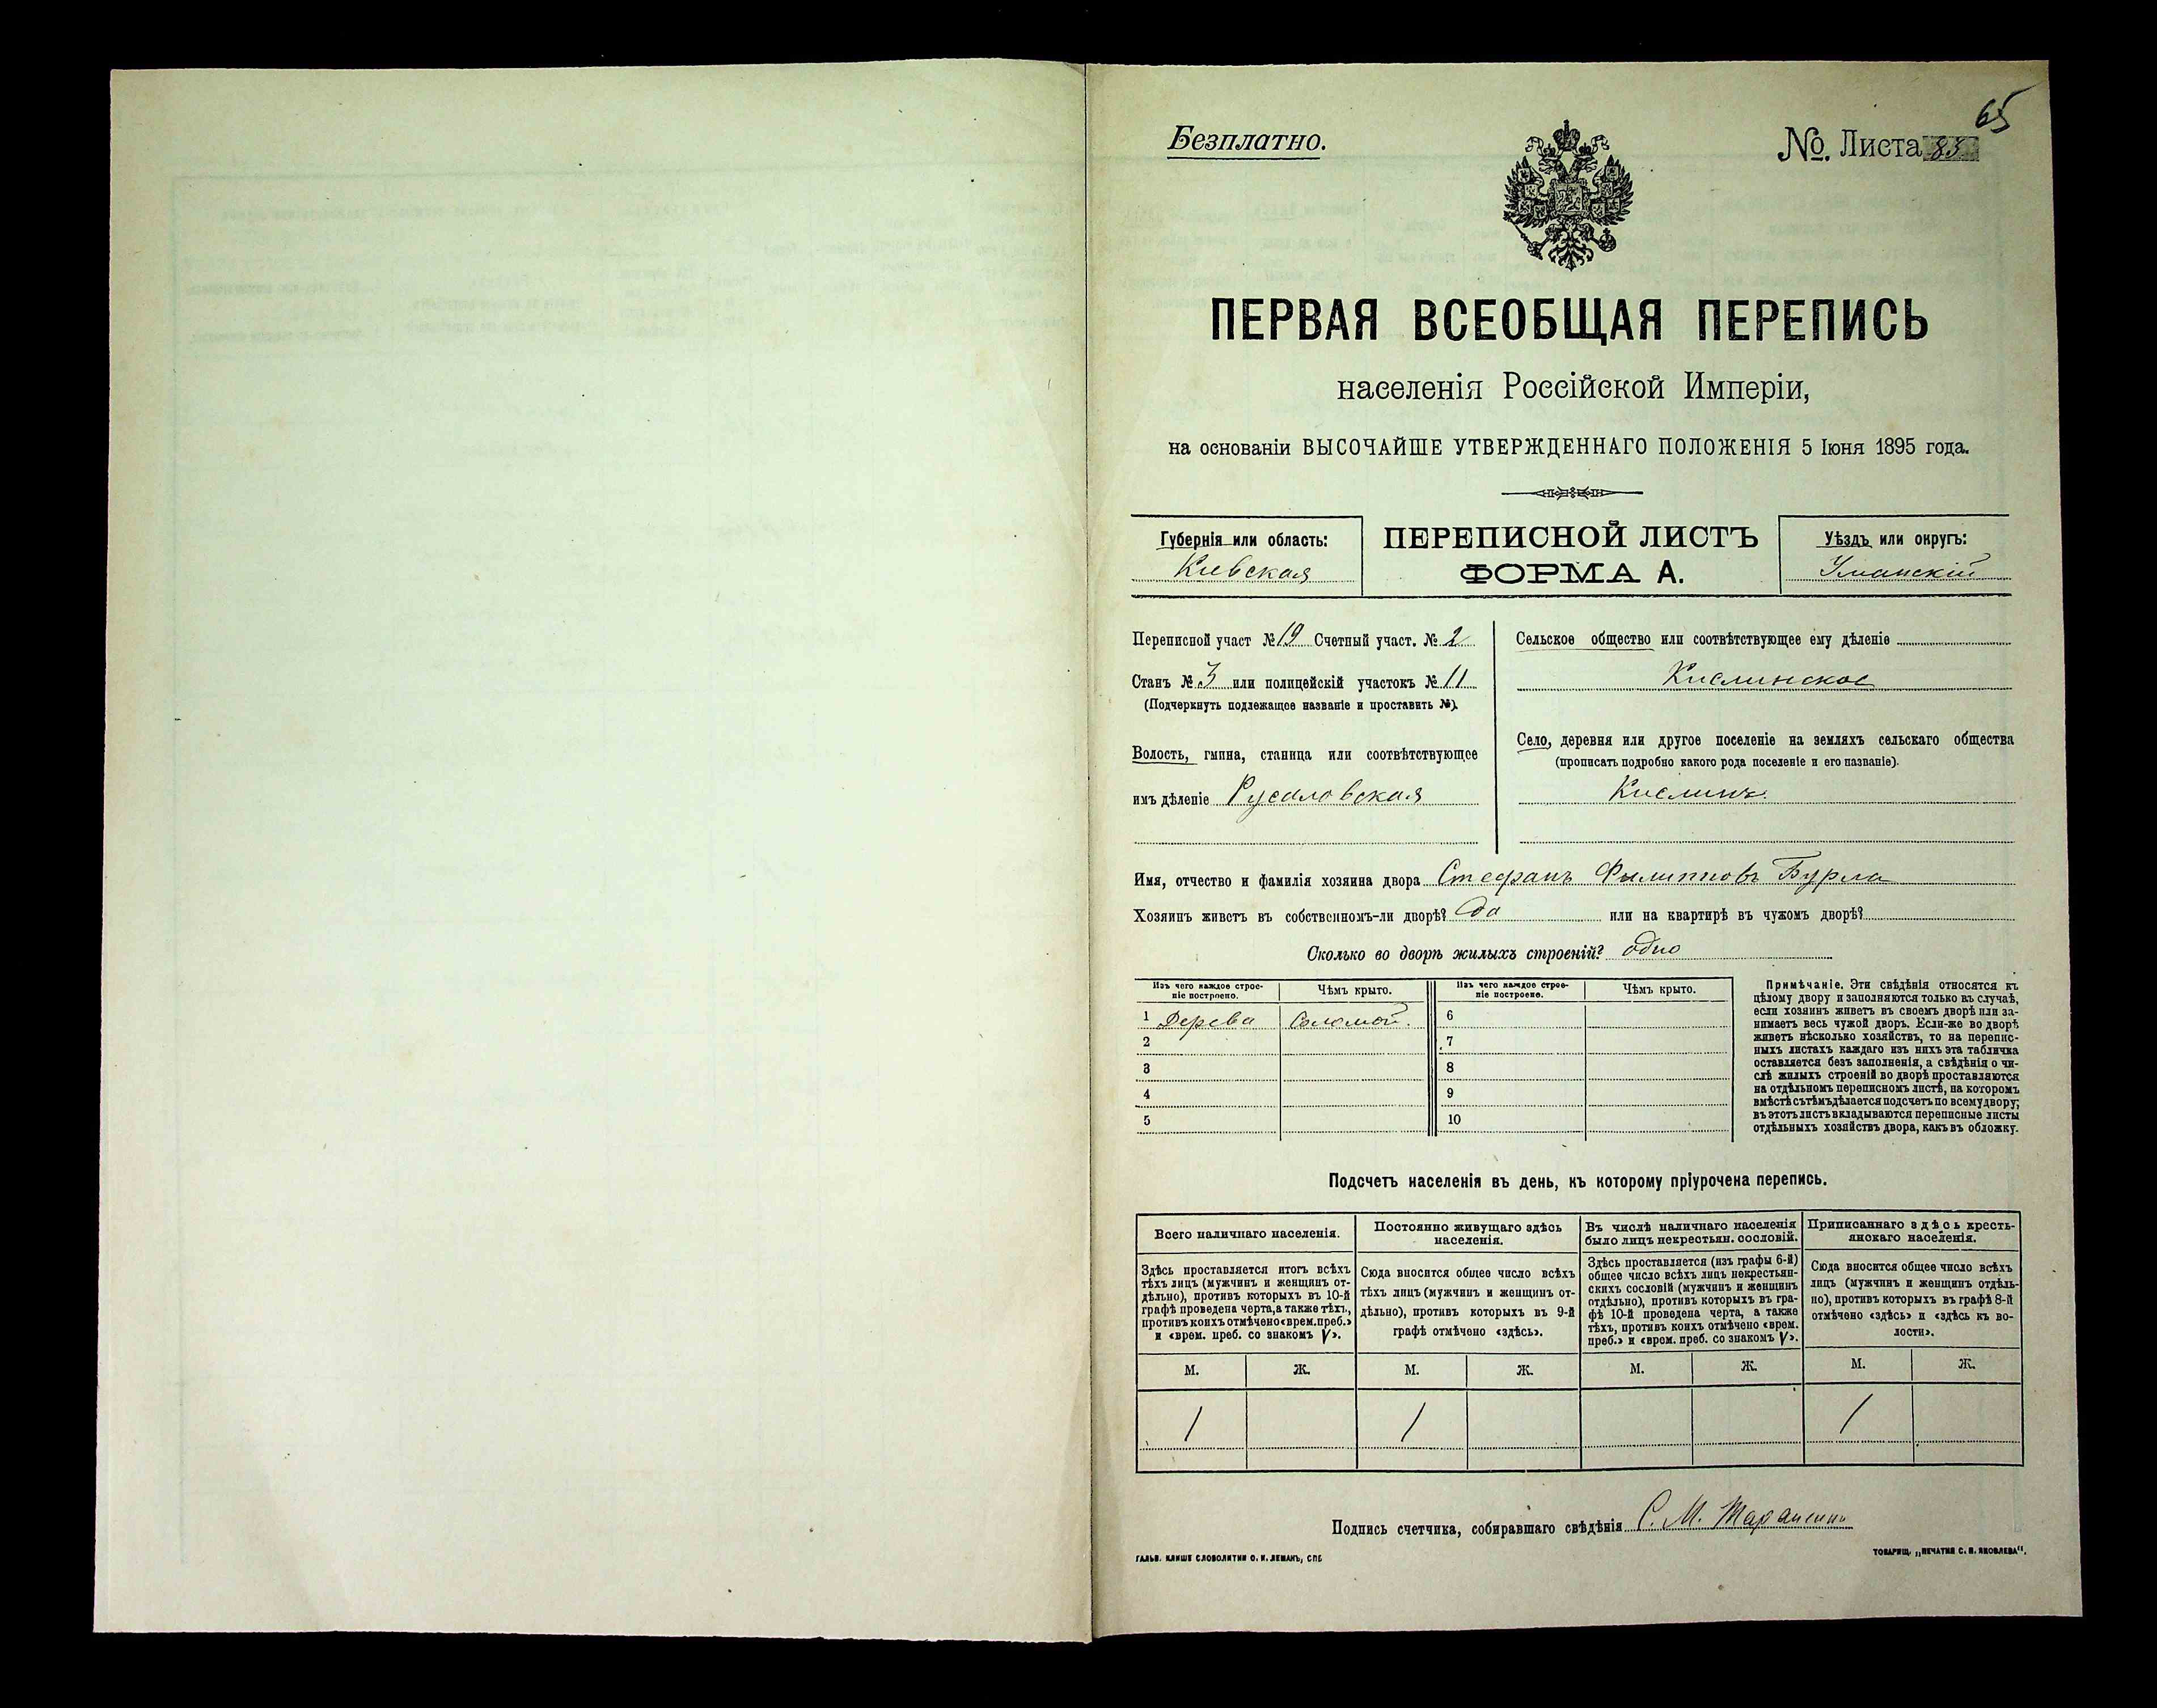 65
Безплатно.
№. Листа 85
ПЕРВАЯ ВСЕОБЩАЯ ПЕРЕПИСЬ
населенія Россійской Имперіи,
на основаніи ВЫСОЧАЙШЕ УТВЕРЖДЕННАГО ПОЛОЖЕНІЯ 5 Іюня 1895 года.
Губернія или область:
Кіевская
ПЕРЕПИСНОЙ ЛИСТЪ
ФОРМА А.
Уѣздъ или округъ:
Уманскій
Переписной участ № 19 Счетный участ. № 2
Станъ № 3 или полицейскій участокъ № 11
(Подчеркнуть подлежащее названіе и проставить №).
Волость, гмина, станица или соотвѣтствующее
имъ дѣленіе Русаловская
Сельское общество или соотвѣтствующее ему дѣленіе
Кислинское
Село, деревня или другое поселеніе на земляхъ сельскаго общества
(прописать подробно какого рода поселеніе и его названіе).
Кислинъ
Имя, отчество и фамилія хозяина двора Стефанъ Филипповъ Бурла
Хозяинъ живетъ въ собственномъ-ли дворѣ? да или на квартирѣ въ чужомъ дворѣ?
Сколько во дворѣ жилыхъ строеній? одно
Изъ чего каждое строе-
ніе построено.
Чѣмъ крыто.
Изъ чего каждое строе-
ніе построено.
Чѣмъ крыто.
1 Дерева Соломой. 6
2 7
3 8
4 9
5 10
Примѣчаніе. Эти свѣдѣнія относятся къ
цѣлому двору и заполняются только въ случаѣ,
если хозяинъ живетъ въ своемъ дворѣ или за-
нимаетъ весь чужой дворъ. Если-же во дворѣ
живетъ нѣсколько хозяйствъ, то на перепис-
ныхъ листахъ каждаго изъ нихъ эта табличка
оставляется безъ заполненія, а свѣдѣнія о чи-
слѣ жилыхъ строеній во дворѣ проставляются
на отдѣльномъ переписномъ листѣ, на которомъ
вмѣстѣ съ тѣмъ дѣлается подсчетъ по всему двору;
въ этотъ листъ вкладываются переписные листы
отдѣльныхъ хозяйствъ двора, какъ въ обложку.
Подсчетъ населенія въ день, къ которому пріурочена перепись.
Всего наличнаго населенія.
Здѣсь проставляется итогъ всѣхъ
тѣхъ лицъ (мужчинъ и женщинъ от-
дѣльно), противъ которыхъ въ 10-й
графѣ проведена черта, а также тѣхъ,
противъ коихъ отмѣчено «врем. преб.»
и «врем. преб. со знакомъ V».
Постоянно живущаго здѣсь
населенія.
Сюда вносится общее число всѣхъ
тѣхъ лицъ (мужчинъ и женщинъ от-
дѣльно), противъ которыхъ въ 9-й
графѣ отмѣчено «здѣсь».
Въ числѣ наличнаго населенія
было лицъ некрестьян. сословій.
Здѣсь проставляется (изъ графы 6-й)
общее число всѣхъ лицъ некрестьян-
скихъ сословій (мужчинъ и женщинъ
отдѣльно), противъ которыхъ въ гра-
фѣ 10-й проведена черта, а также
тѣхъ, противъ коихъ отмѣчено «врем.
преб.» и «врем. преб. со знакомъ V».
Приписаннаго здѣсь кресть-
янскаго населенія.
Сюда вносится общее число всѣхъ
лицъ (мужчинъ и женщинъ отдѣль-
но), противъ которыхъ въ графѣ 8-й
отмѣчено «здѣсь» и «здѣсь къ во-
лости».
М. Ж. М. Ж. М. Ж. М. Ж.
1 1 1
Подпись счетчика, собиравшаго свѣдѣнія С. М.
ГАЛЬВ. КЛИШЕ СЛОВОЛИТНИ О. И. ЛЕМАНЪ, СПБ
ТОВАРИЩ. „ПЕЧАТНЯ С. П. ЯКОВЛЕВА“.